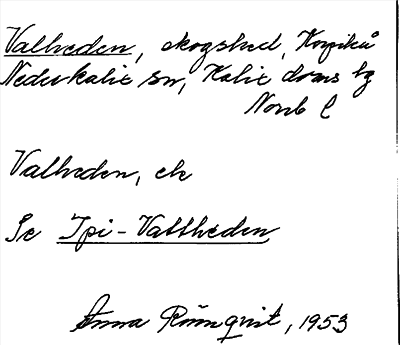 Valheden, skogshed, Korpikå
Nederkalix sn, Kalix doms hg
Norrb l
Valheden, ck
Se Ipi-Vallheden
Anna Rönnqvist, 1953